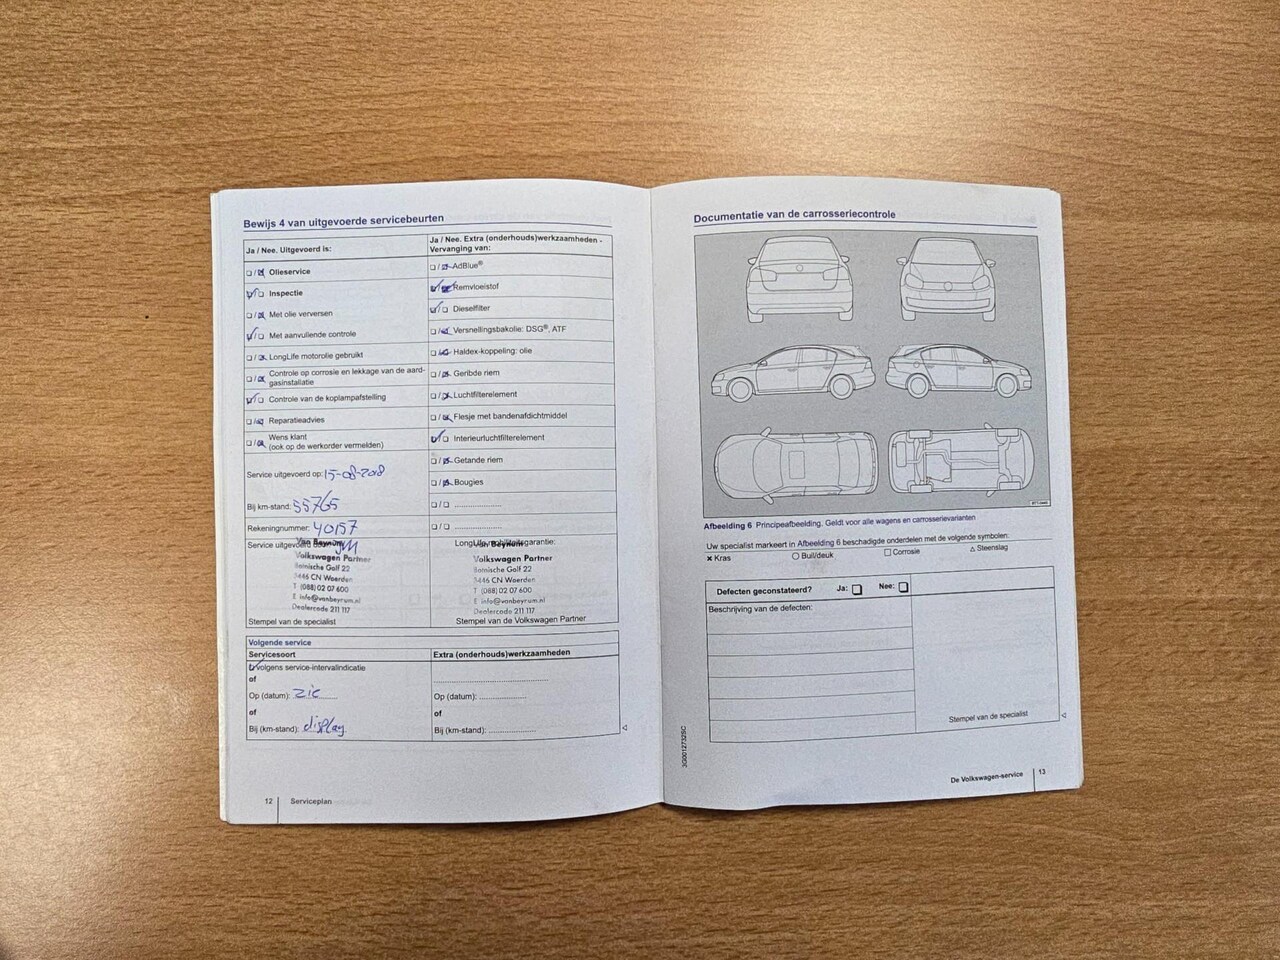 Bewijs 4 van uitgevoerde servicebeurten
Ja / Nee. Uitgevoerd is:
Olieservice
Inspectie
Met olie verversen
Met aanvullende controle
LongLife motorolie gebruikt
Controle op corrosie en lekkage van de aard-
gasinstallatie
Controle van de koplampafstelling
Reparatieadvies
Wens klant
(ook op de werkorder vermelden)
Service uitgevoerd op: 15-08-2018
Bij km-stand: 55765
Rekeningnummer: 40157
Service uitgevoerd
Van Beynum
Volkswagen Partner
Bornische Golf 22
3446 CN Woerden
T (088) 02 07 600
E info@vanbeyrum.nl
Dealercode 211 117
Stempel van de specialist
Ja / Nee. Extra (onderhouds)werkzaamheden -
Vervanging van:
AdBlue®
Remvloeistof
Dieselfilter
Versnellingsbakolie: DSG®, ATF
Haldex-koppeling: olie
Geribde riem
Luchtfilterelement
Flesje met bandenafdichtmiddel
Interieurluchtfilterelement
Getande riem
Bougies
Van Beynum
Volkswagen Partner
Bornische Golf 22
3446 CN Woerden
T (088) 02 07 600
E info@vanbeyrum.nl
Dealercode 211 117
Stempel van de Volkswagen Partner
Volgende service
Servicesoort
volgens service-intervalindicatie
of
Op (datum): zie
of
Bij (km-stand): display
Extra (onderhouds)werkzaamheden
Op (datum):
of
Bij (km-stand):
12 Serviceplan
Documentatie van de carrosseriecontrole
Afbeelding 6 Principeafbeelding. Geldt voor alle wagens en carrosserievarianten
Uw specialist markeert in Afbeelding 6 beschadigde onderdelen met de volgende symbolen:
Kras
Buil/deuk
Corrosie
Steenslag
Defecten geconstateerd? Ja: Nee:
Beschrijving van de defecten:
Stempel van de specialist
3G0012732SC
De Volkswagen-service 13